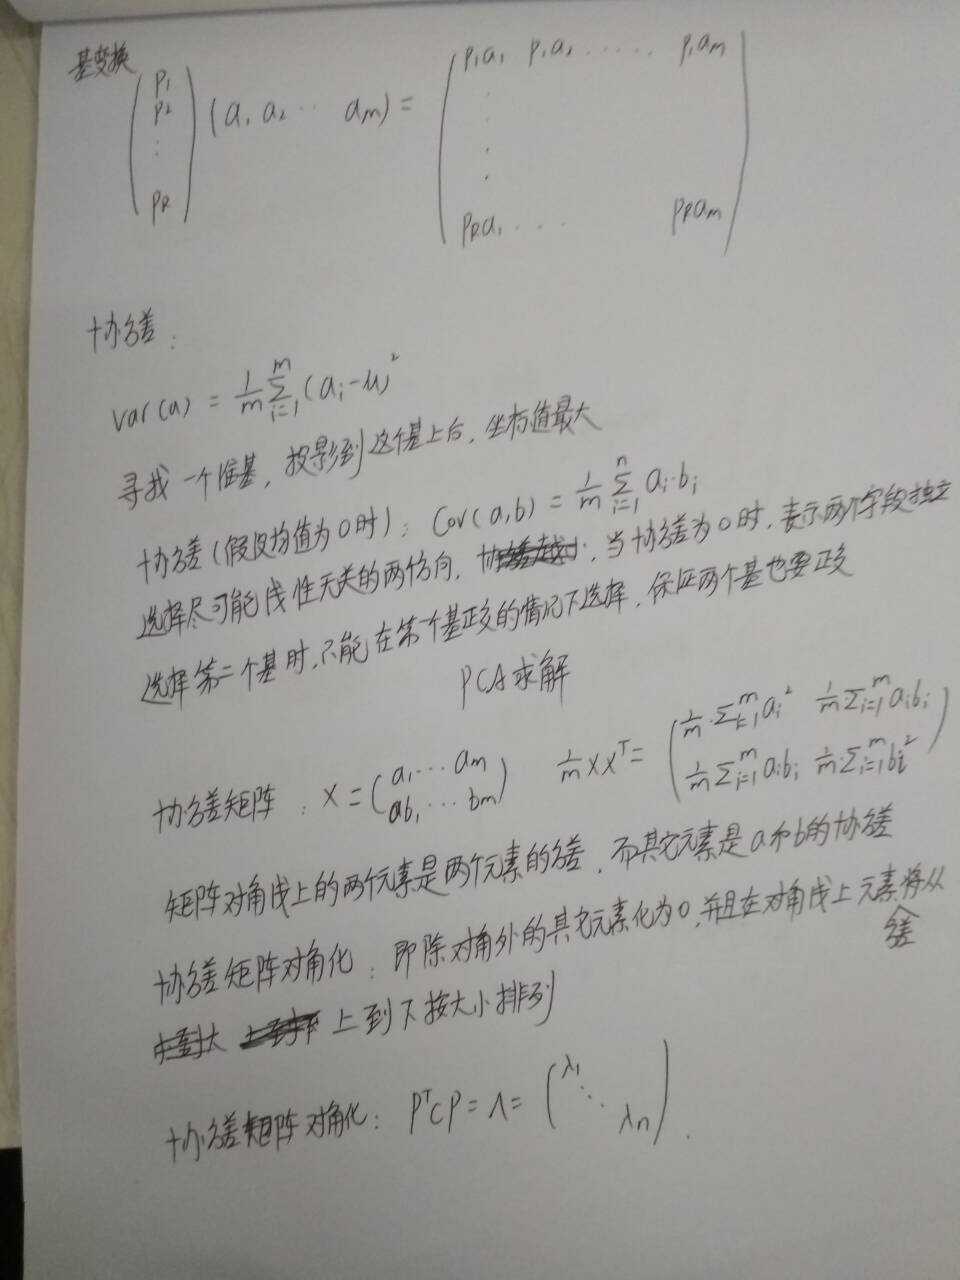 基变换
(p₁ p₂ ⋮ p_R) (a₁ a₂ ⋯ a_m) = (p₁a₁ p₁a₂ ⋯⋯ p₁a_m ⋮ p_Ra₁ ⋯ p_Ra_m)
协方差：
var(a) = 1/m Σ_{i=1}^{m} (a_i-μ)²
寻找一个准基，投影到这个基上后，坐标值最大
协方差(假设均值为0时)：Cov(a,b) = 1/m Σ_{i=1}^{n} a_i·b_i
选择尽可能线性无关的两个方向，协方差越小，当协方差为0时，表示两个字段独立
选择第二个基时，只能在第一个基正交的情况下选择，保证两个基也要正交
PCA求解
协方差矩阵：X = (a₁ ⋯ a_m ab₁ ⋯ b_m) 1/m XXᵀ = (1/m·Σ_{i=1}^{m} a_i² 1/m Σ_{i=1}^{m} a_ib_i 1/m Σ_{i=1}^{m} a_ib_i 1/m Σ_{i=1}^{m} b_i²)
矩阵对角线上的两个元素是两个元素的方差，而其它元素是a和b的协方差
协方差矩阵对角化：即除对角外的其它元素化为0，并且在对角线上元素将从
方差
上到下按大小排列
协方差矩阵对角化：PᵀCP = Λ = (λ₁ ⋱ λn).